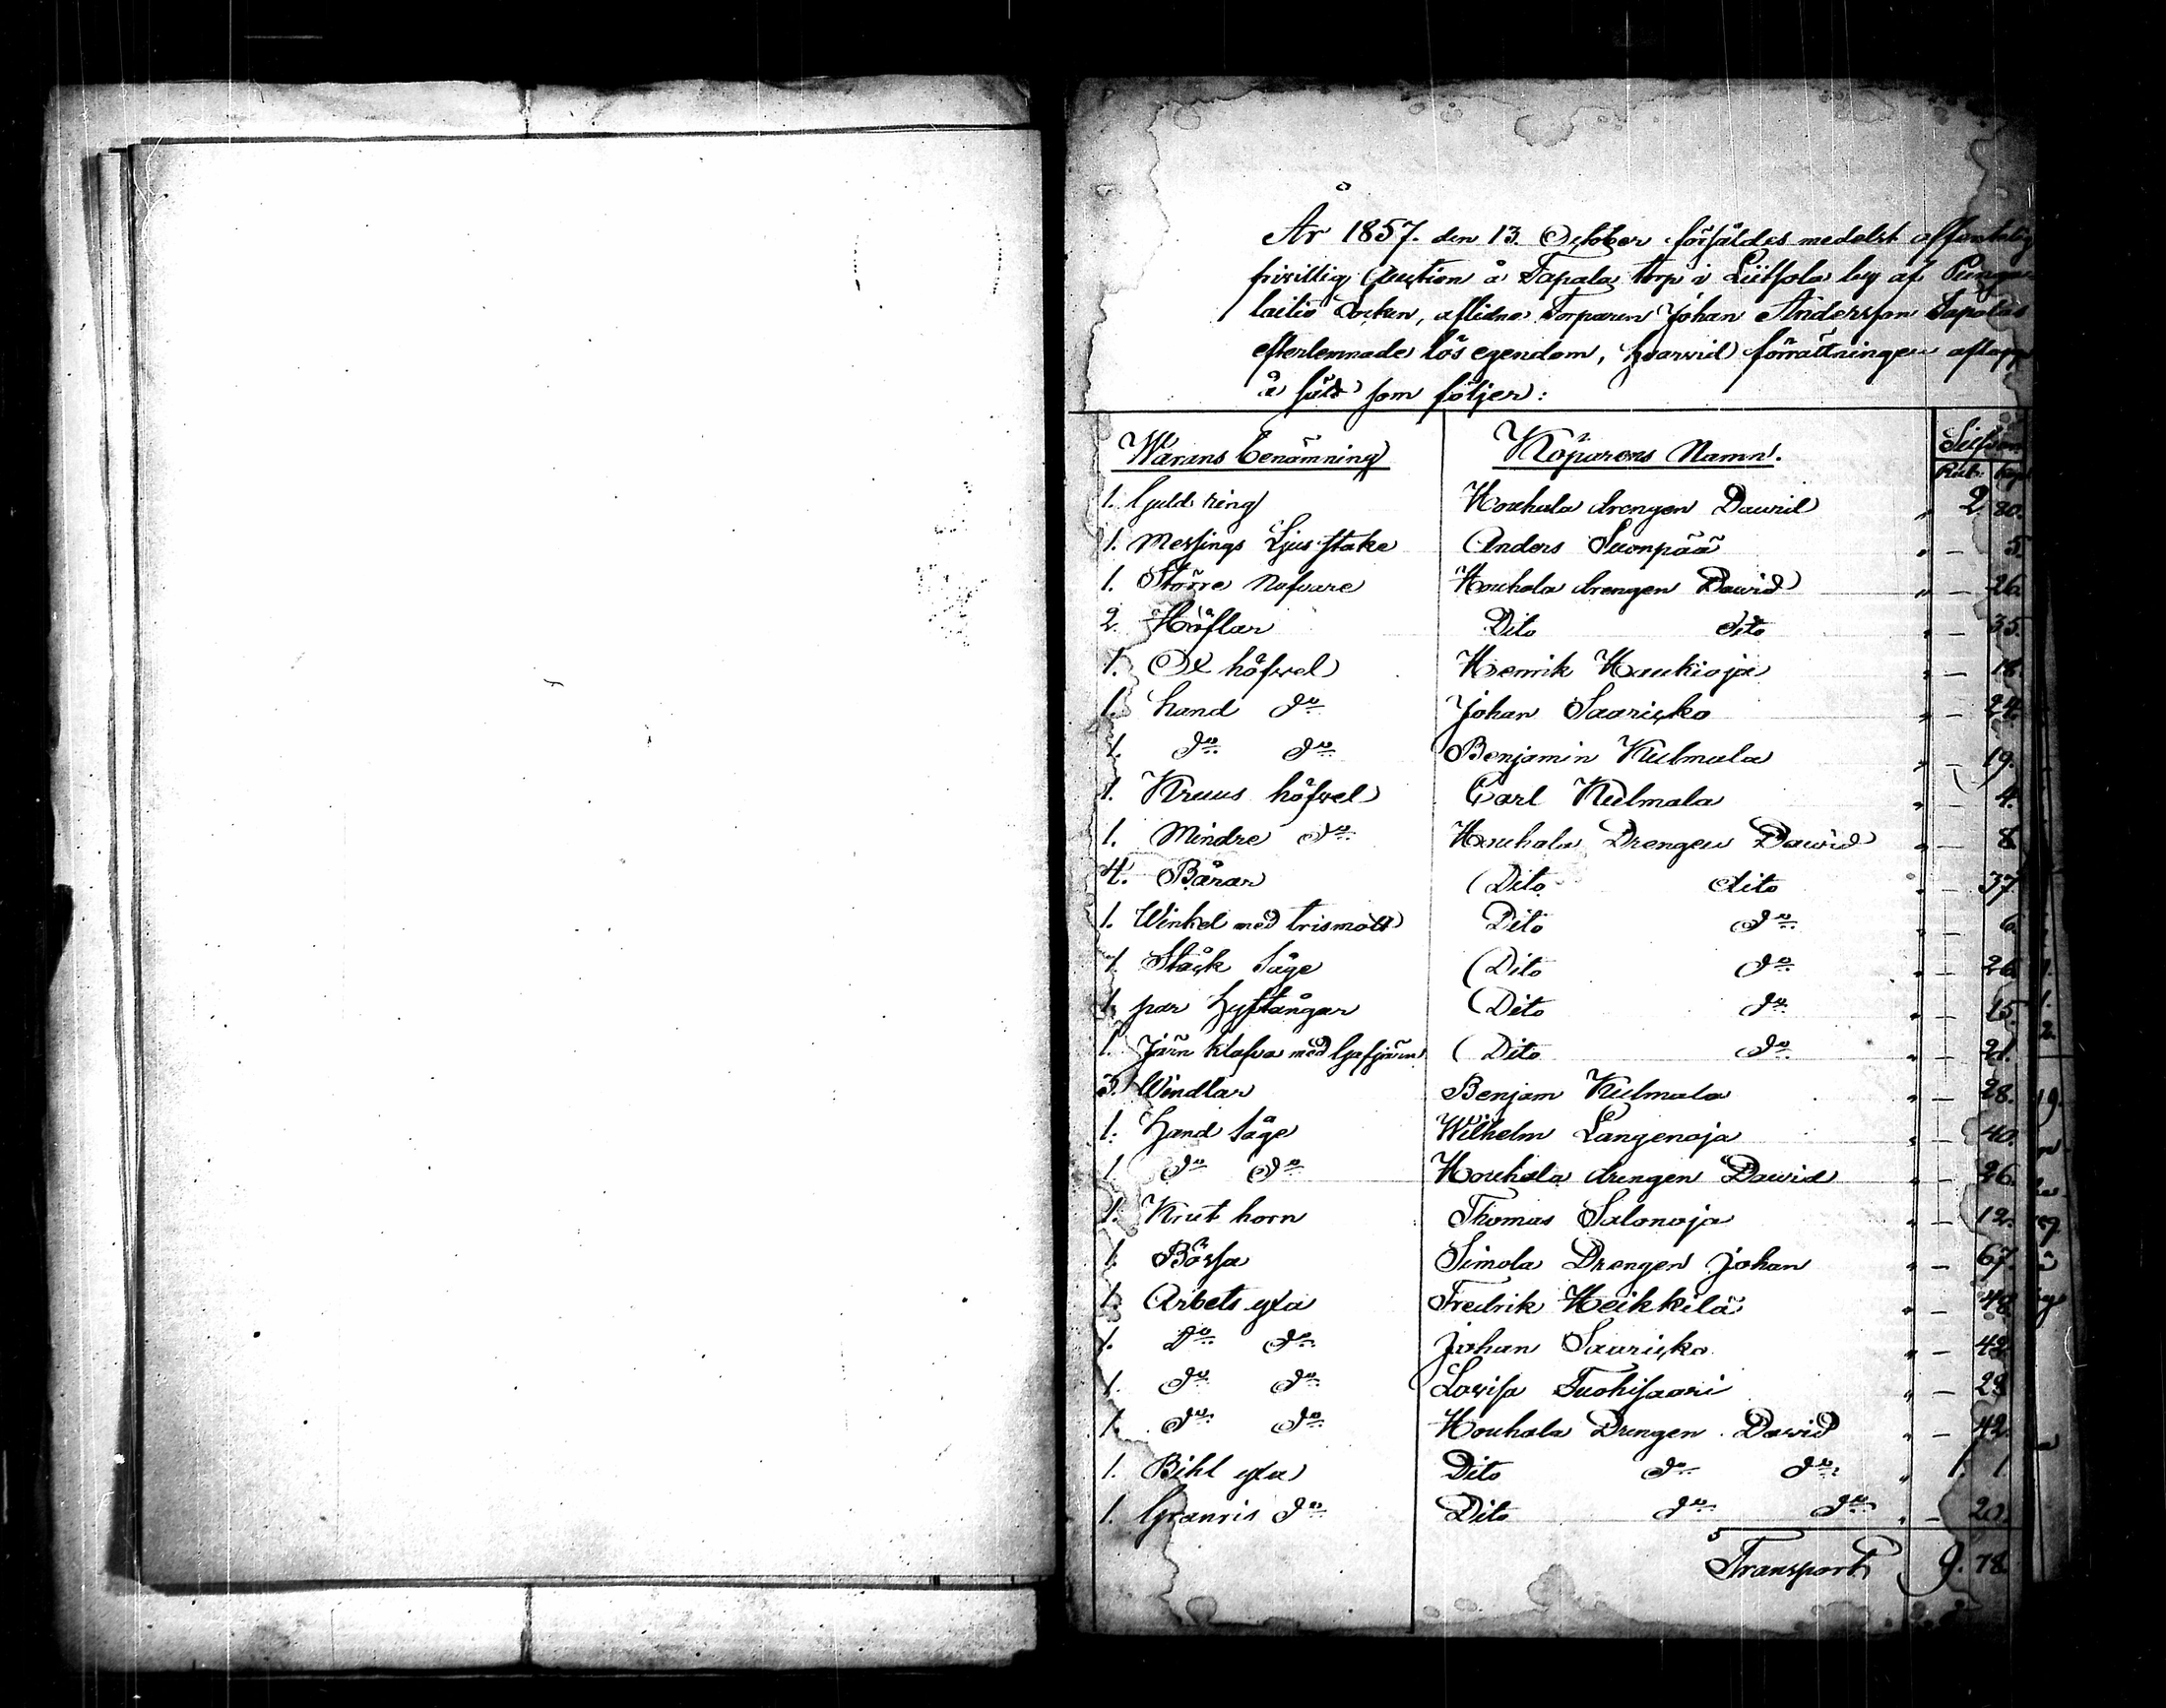 År 1857. den 13. October försåldes medelst offentelig
frivillig Auction å Tapala torp i Liitsola by af Punga-
laitio Socken, aflidne Torparen Johan Andersson Tapalas
efterlemnade lös egendom, hvarvid förrättningen aflopp
å sätt som följer:
Warans benämning Köparens Namn. Silfver
Rub. Kop.
1. Guld ring Houhala drengen Dawid " 2. 80.
1. Messings Ljus stake Anders Suonpää " — 5.
1. Större Nafvare Houhala drengen Dawid " — 26
2. Höflar Dito dito " — 35.
1. Ox höfvel Henrik Haukioja " — 18.
1. hand do Johan Saarisko " — 24.
1. do do Benjamin Kulmala " — 19.
1. Kruus höfvel Carl Kulmala " — 4.
1. Mindre do Houhala Drengen Dawid " — 8
4. Bårar Dito dito " — 37
1. Winkel med Dito do " — 6.
1. Ståck Såge Dito do " — 26.
1. par Hyftångar Dito do " — 15.
1. Järn klafva med Dito do " — 21.
3. Windlar Benjam Kulmala " — 28.
1. Hand såge Wilhelm Langenoja " — 40.
1. do do Houhala drengen Dawid " — 26.
1. Krut horn Thomas Salonoja " — 12.
1. Börsa Simola Drengen Johan " — 67.
1. Arbets yxa Fredrik Heikkilä " — 48
1. Do do Johan Saarisko " — 42
1. do do Lovisa Tuohisaari " — 29
1. do do Houhala Drengen Dawid " — 42.
1. Bihl yxa Dito do do " 1. 1
1. Granris do Dito do do " — 20.
Transport 9. 78.